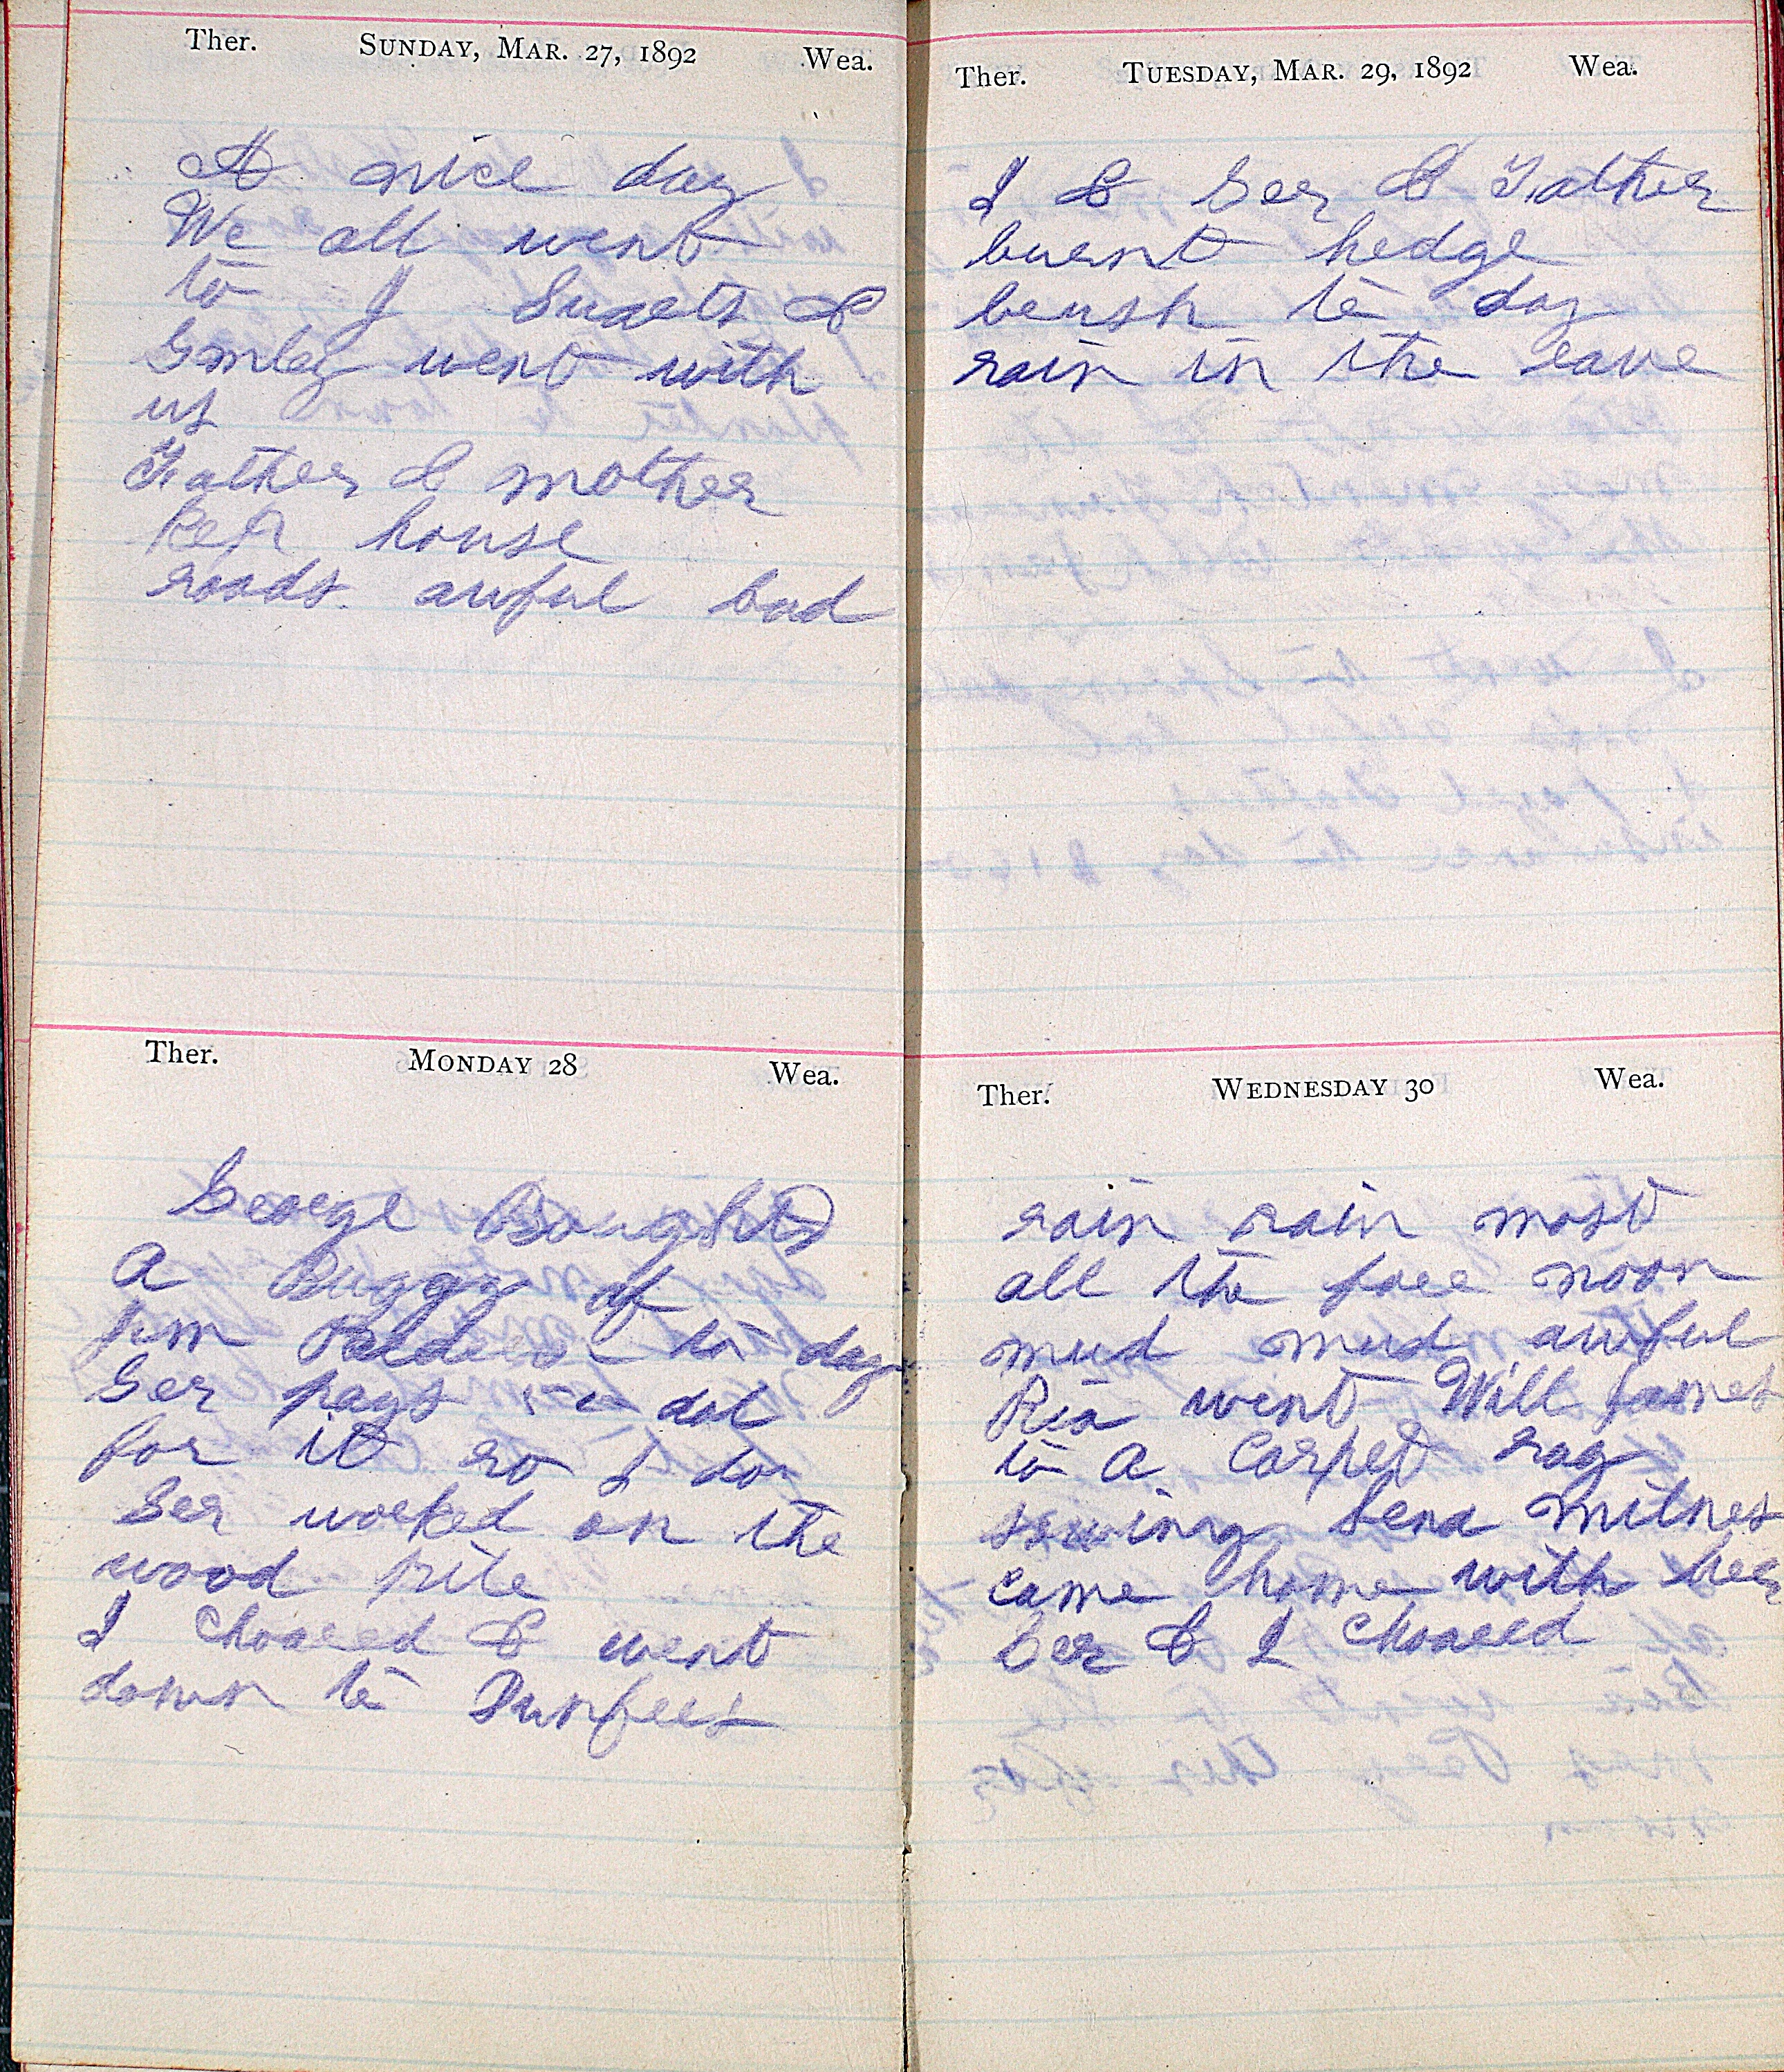 Ther. SUNDAY, MAR. 27, 1892 Wea.
A nice day
We all went
to J Swets &
Emley went with
us
Father & mother
Kep house
roads awful bad
Ther. MONDAY 28 Wea.
George Bought
a Buggy of
Jim to day
Ger pays dol
for it so I do
Ger worked on the
wood pile
I Choored & went
down to Dunfees
Ther. TUESDAY, MAR. 29, 1892 Wea.
I & Ger & Father
burnt hedge
brush to day
rain in the eave
Ther. WEDNESDAY 30 Wea.
rain rain most
all the fore noon
mud mud awful
Ria went Will James
to a Carped rag
sewing Lena Milnes
came home with her
Ger & I Choored